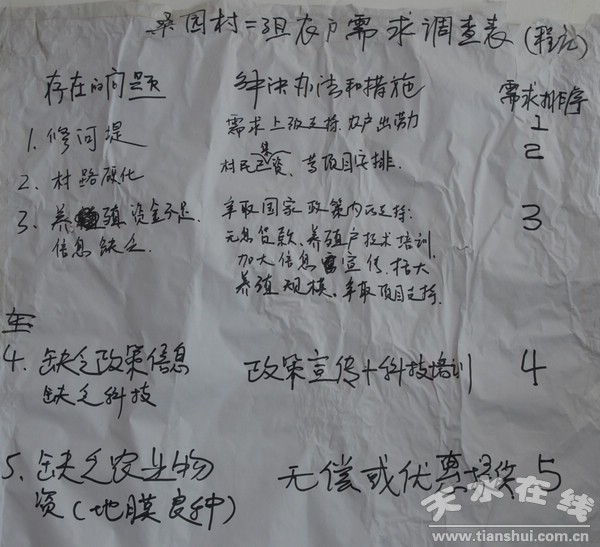 桑园村二组农户需求调查表(程沟)
存在的问题 解决办法和措施 需求排序
1. 修河堤 需求上级支持.农户出劳力 1
2. 村路硬化 村民集资、等项目安排. 2
3. 养殖资金不足. 争取国家政策内的支持. 3
信息缺乏. 无息贷款、养殖户技术培训.
加大信息宣传.扩大
养殖规模.争取项目支持.
4. 缺乏政策信息 政策宣传+科技培训 4
缺乏科技
5. 缺乏农业物 无偿或优惠提供 5
资(地膜良种)
天水在线
www.tianshui.com.cn